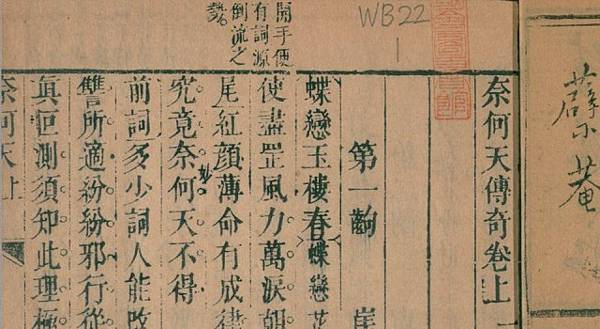 薜
菴
奈何天傳奇卷上
第一齣
崖
蝶戀玉樓春 蝶戀花
使盡罡風力萬淚
尾紅顏薄命有成律
究竟奈何天不得
妙
前詞多少詞人能改
讐所適紛紛邪行從
真叵測須知此理極
奈何天上
開手便
有詞源
倒流之
勢
WB22
1